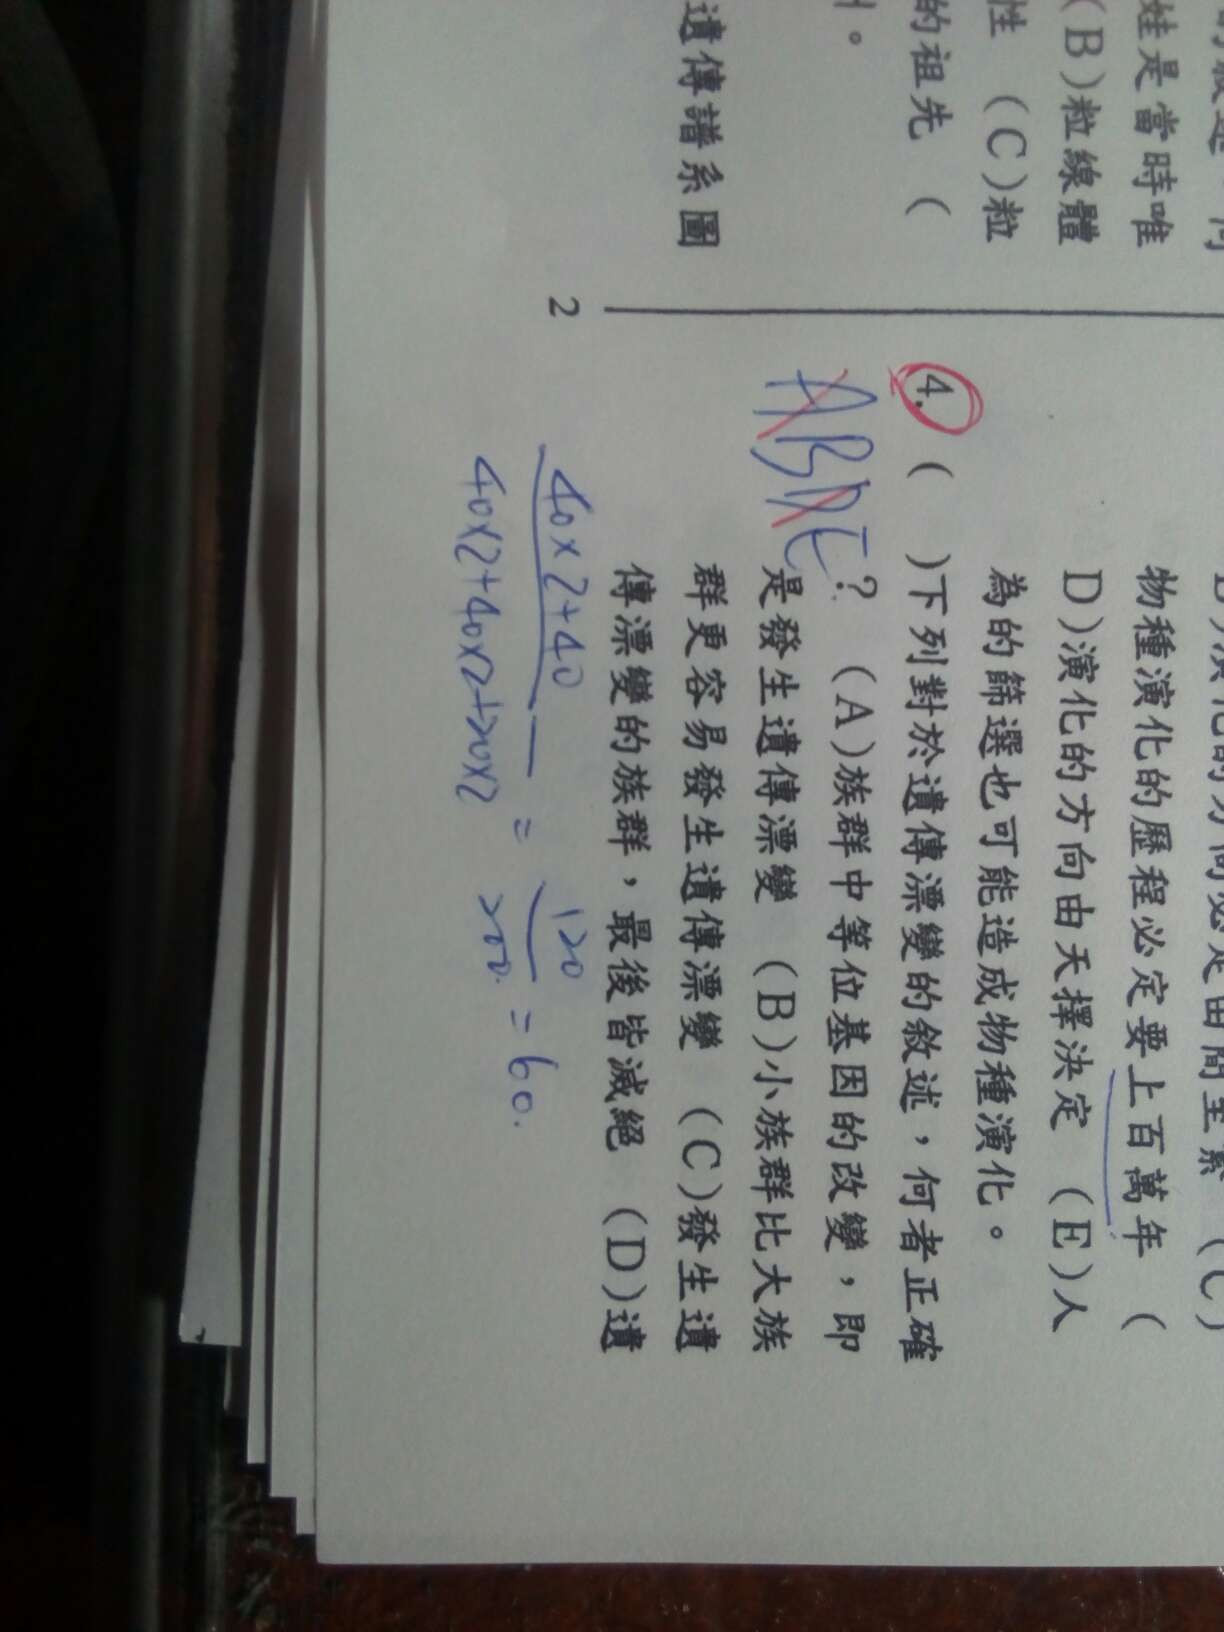 娃是當時唯
(B)粒線體
性 (C)粒
的祖先 (
。
遺傳譜系圖
2
物種演化的歷程必定要上百萬年 (
D)演化的方向由天擇決定 (E)人
為的篩選也可能造成物種演化。
4. ( )下列對於遺傳漂變的敘述，何者正確
ABDE
? (A)族群中等位基因的改變，即
是發生遺傳漂變 (B)小族群比大族
群更容易發生遺傳漂變 (C)發生遺
傳漂變的族群，最後皆滅絕 (D)遺
40×2+40
40×2+40×2+20×2
= 120
200
= 60.